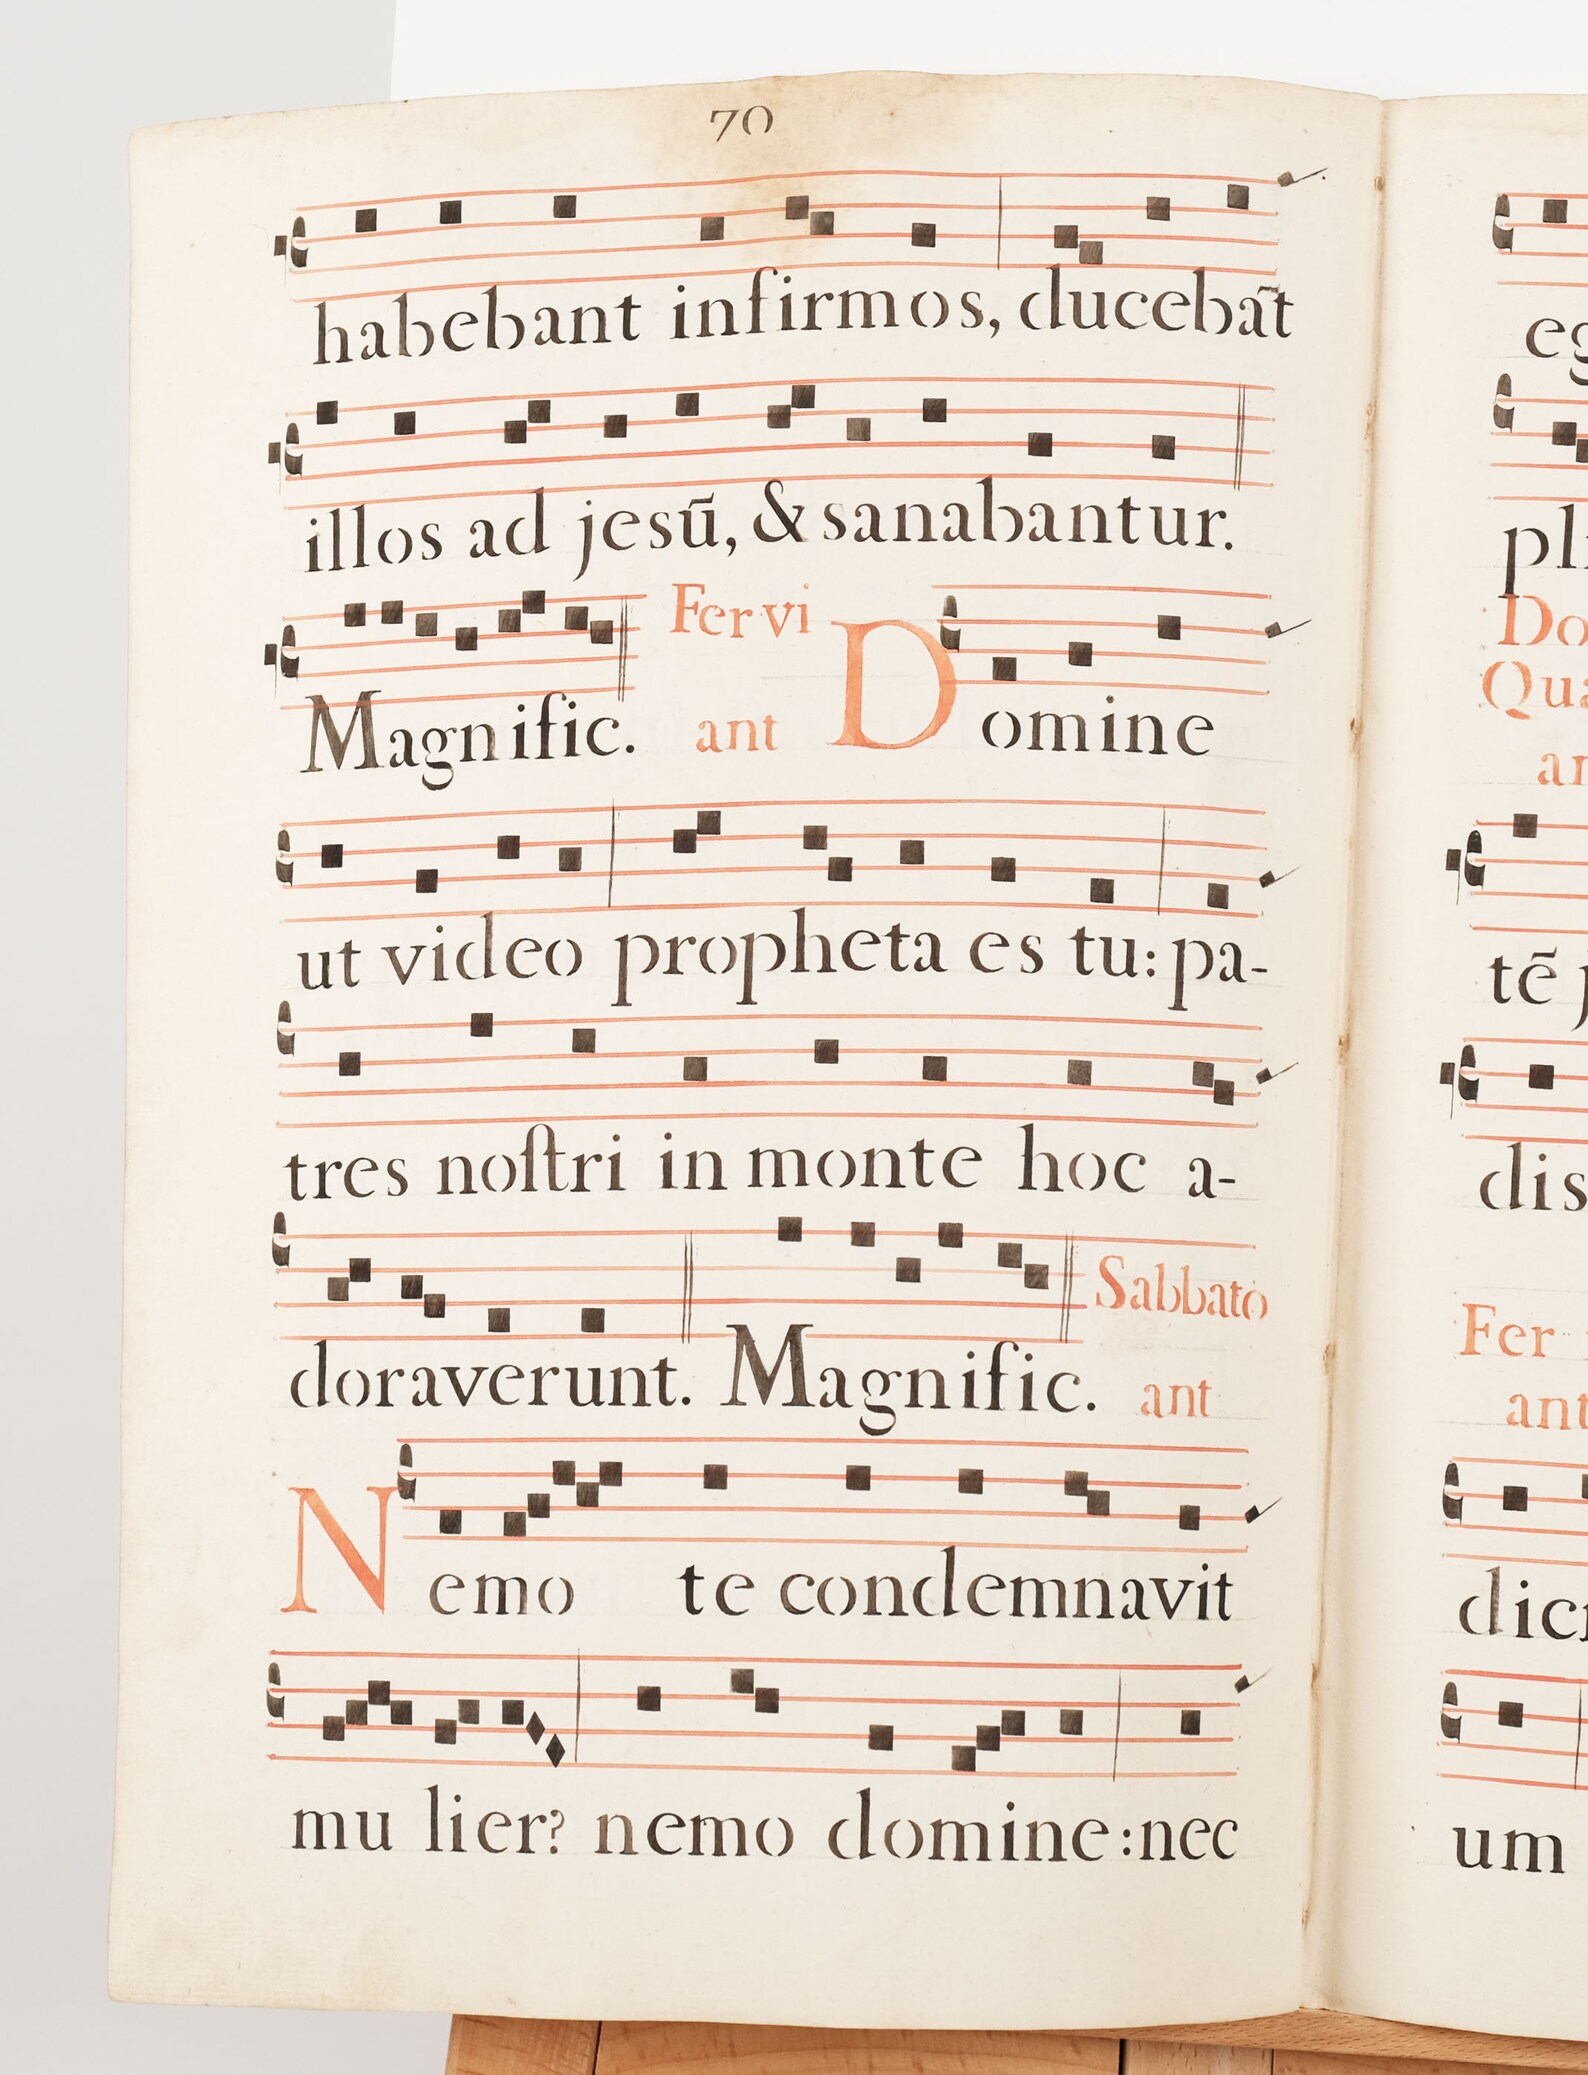 70
habebant infirmos, ducebāt
illos ad jesū, & sanabantur.
Magnific. Fer vi ant Domine
ut video propheta es tu: pa-
tres noſtri in monte hoc a-
doraverunt. Magnific. Sabbato ant
Nemo te condemnavit
mu lier? nemo domine: nec
eg
pli
Do
Qua
an
tē j
dis
Fer
ant
dici
um